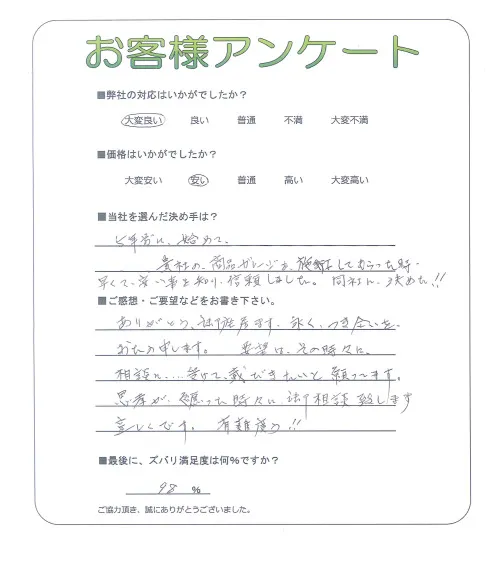 お客様アンケート
■弊社の対応はいかがでしたか？
大変良い 良い 普通 不満 大変不満
■価格はいかがでしたか？
大変安い 安い 普通 高い 大変高い
■当社を選んだ決め手は？
5年前に、始めて、
貴社の、商品ガレージを、してもらった時、
早くて、安い事を知り、信頼しました。同社に、決めた!!
■ご感想・ご要望などをお書き下さい。
ありがとう、ます。永く、つき合いを、
お願い申します。要望は、その時々に、
相談に…きたいと願ってます。
時々に、相談致します
宜しくです。有難う!!
■最後に、ズバリ満足度は何%ですか？
98 %
ご協力頂き、誠にありがとうございました。